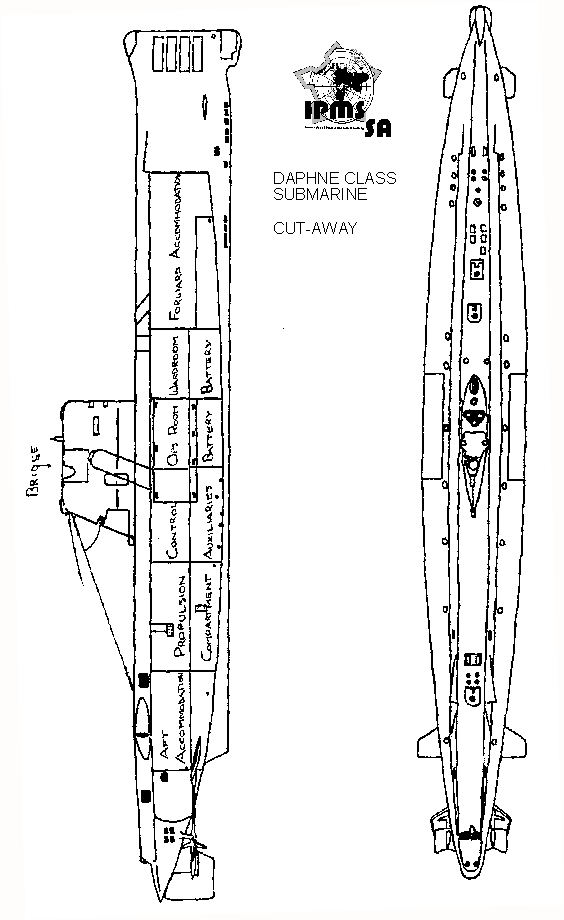 IPMS
SA
DAPHNE CLASS
SUBMARINE
CUT-AWAY
FORWARD ACCOMMODATION
WARDROOM
BATTERY
OPS ROOM
BATTERY
BRIDGE
CONTROL
AUXILIARIES
PROPULSION
COMPARTMENT
AFT
ACCOMMODATION